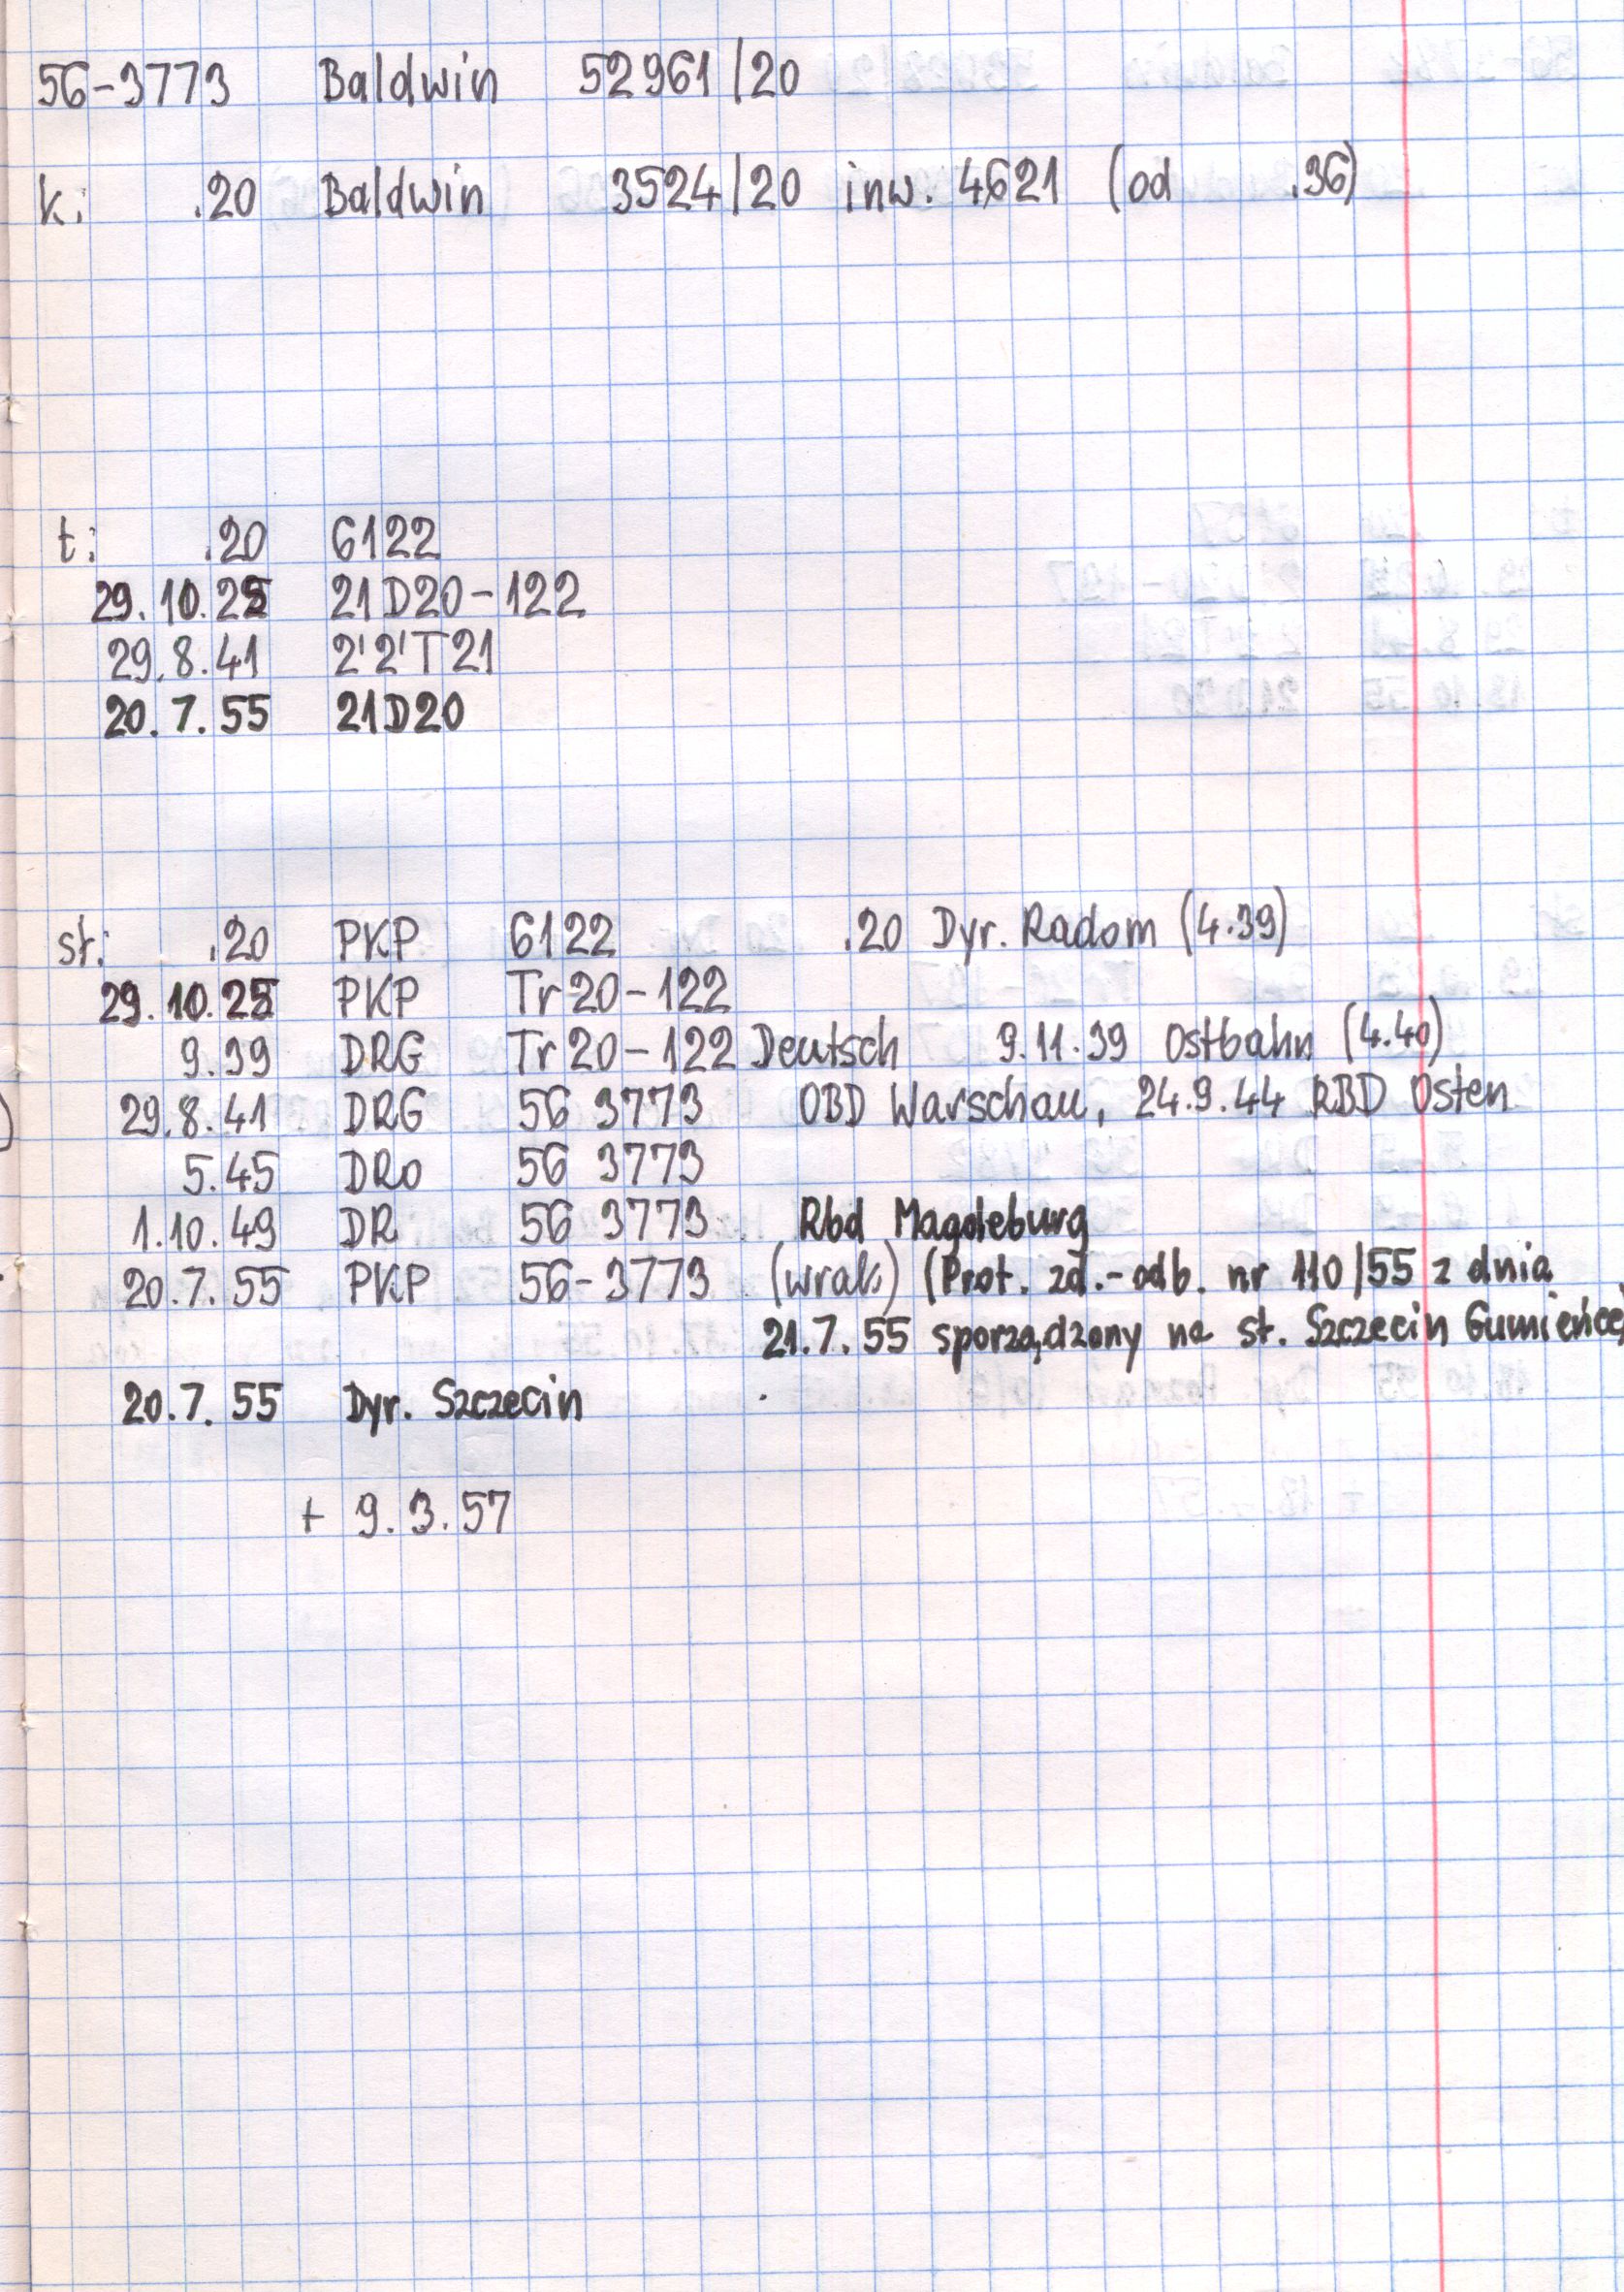 56-3773 Baldwin 52961/20
k: .20 Baldwin 3524/20 inw. 4621 (od .36)
t: .20 6122
29.10.25 21D20-122
29.8.41 2'2'T21
20.7.55 21D20
st: .20 PKP 6122 .20 Dyr. Radom (4.39)
29.10.25 PKP Tr20-122
9.39 DRG Tr20-122 Deutsch 9.11.39 Ostbahn (4.40)
29.8.41 DRG 56 3773 OBD Warschau, 24.9.44 RBD Osten
5.45 DRo 56 3773
1.10.49 DR 56 3773 Rbd Magdeburg
20.7.55 PKP 56-3773 (wrak) (Prot. zd.-odb. nr 110/55 z dnia
21.7.55 sporządzony na st. Szczecin Gumieńce)
20.7.55 Dyr. Szczecin
+ 9.3.57